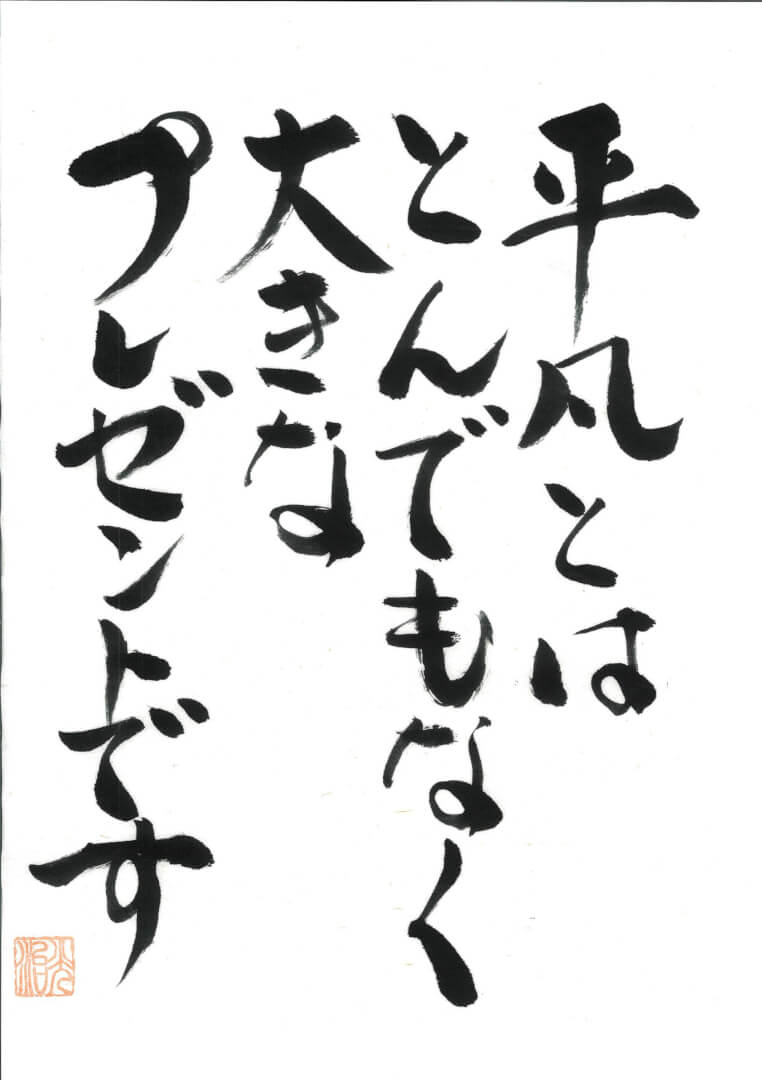 平凡とは
とんでもなく
大きな
プレゼントです